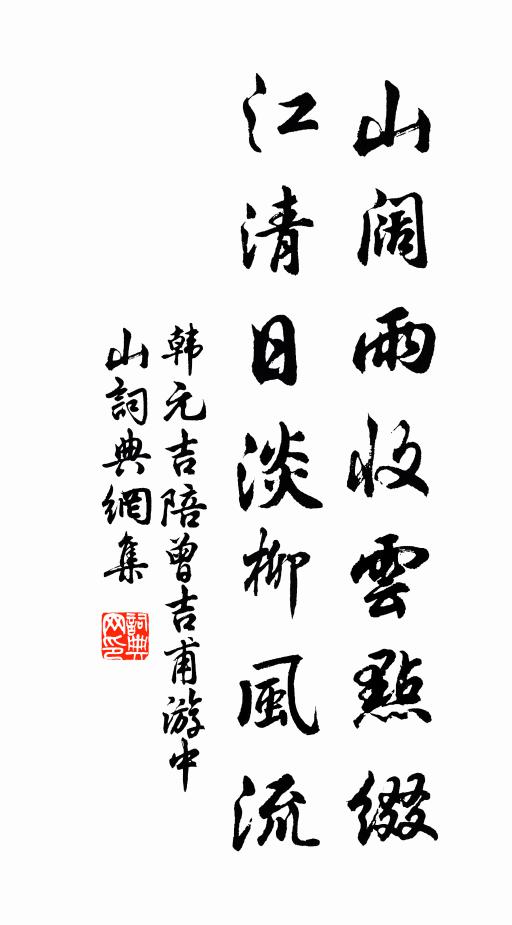 山阔雨收雲點綴
江清日淡柳風流
韩元吉陪曾吉甫游中
山詞典網集
詞典网印